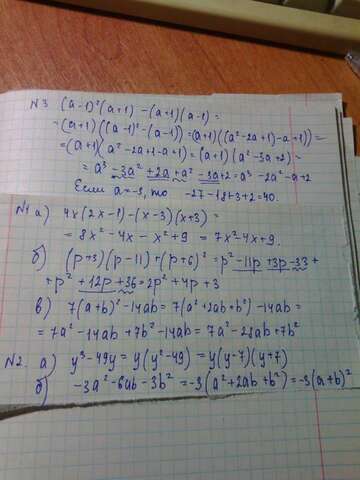 N3 (a-1)²(a+1) - (a+1)(a-1) =
= (a+1)((a-1)² - (a-1)) = (a+1)((a²-2a+1) - a+1)) =
= (a+1)(a²-2a+1-a+1) = (a+1)(a²-3a+2) =
= a³ - 3a² + 2a + a² - 3a + 2 = a³ - 2a² - a + 2
Если a = -3, то -27-18+3+2 = 40.
N1 a) 4x(2x-1) - (x-3)(x+3) =
= 8x² - 4x - x² + 9 = 7x² - 4x + 9.
б) (p+3)(p-11) + (p+6)² = p² - 11p + 3p - 33 +
+ p² + 12p + 36 = 2p² + 4p + 3
в) 7(a+b)² - 14ab = 7(a²+2ab+b²) - 14ab =
= 7a² - 14ab + 7b² - 14ab = 7a² - 28ab + 7b²
N2. a) y³ - 49y = y(y² - 49) = y(y-7)(y+7)
б) -3a² - 6ab - 3b² = -3(a²+2ab+b²) = -3(a+b)²